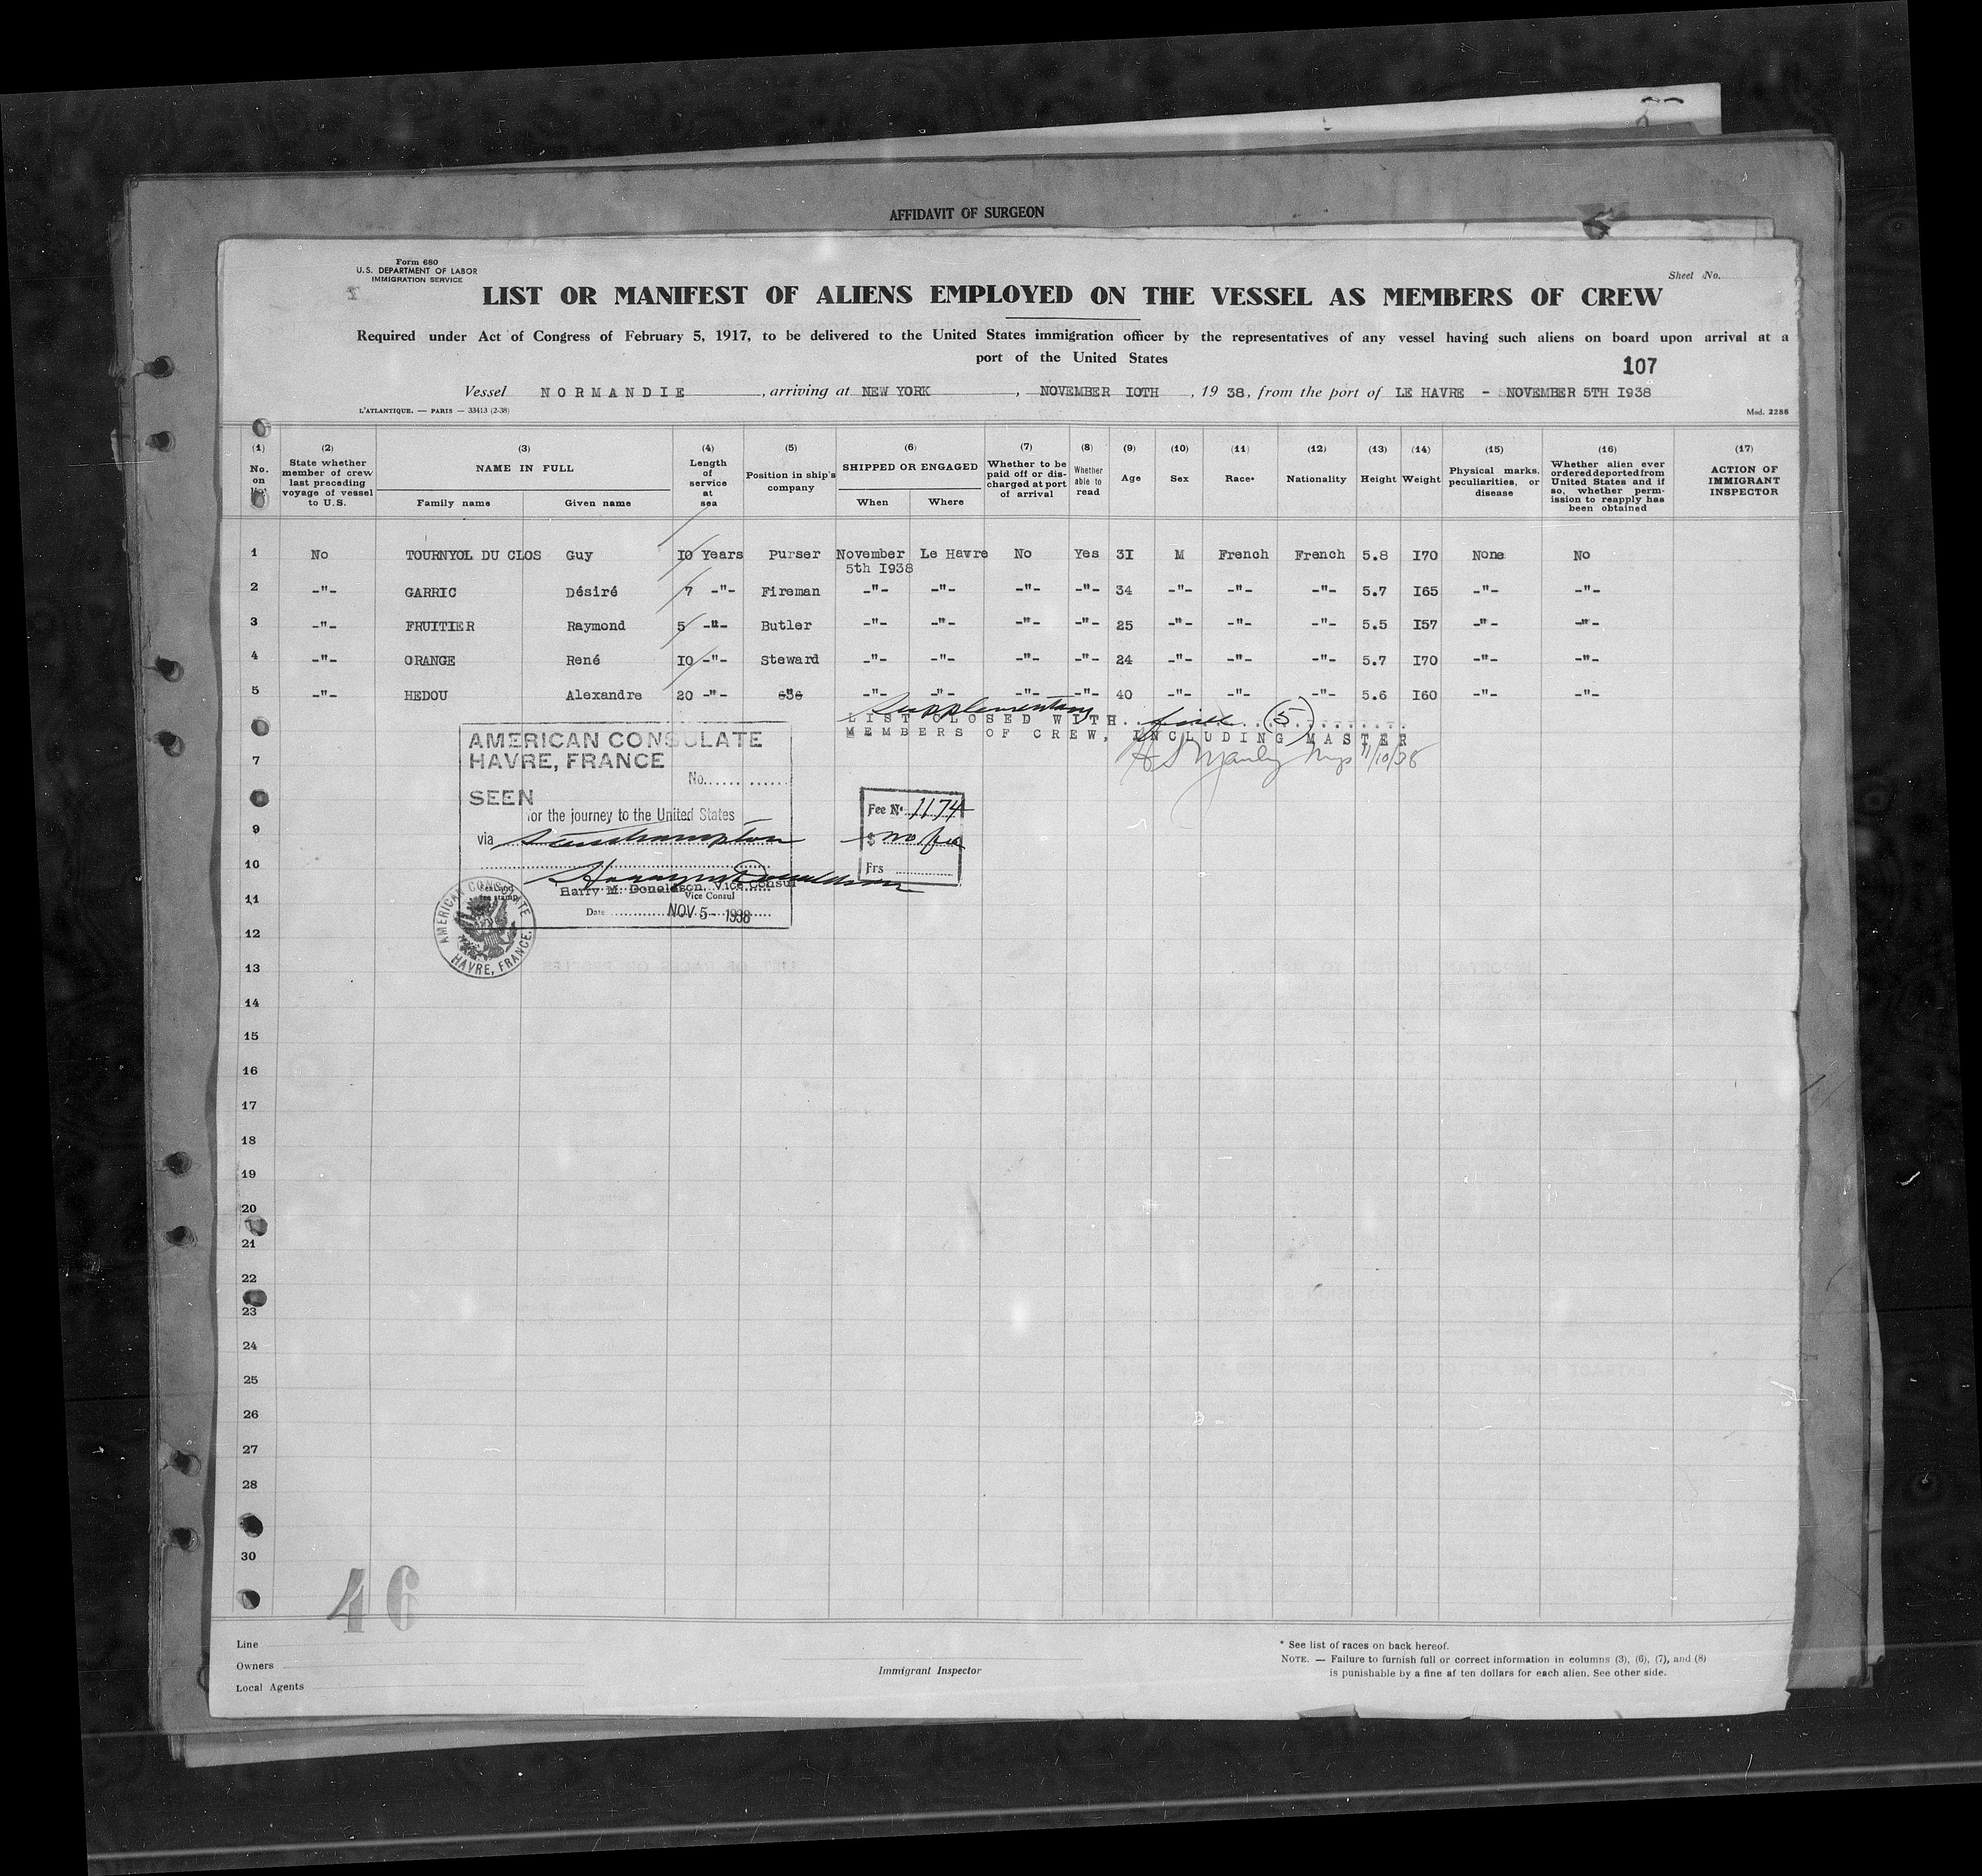 AFFIDAVIT OF SURGEON
Form 680
U.S. DEPARTMENT OF LABOR
IMMIGRATION SERVICE
Sheet No.
LIST OR MANIFEST OF ALIENS EMPLOYED ON THE VESSEL AS MEMBERS OF CREW
Required under Act of Congress of February 5, 1917, to be delivered to the United States immigration officer by the representatives of any vessel having such aliens on board upon arrival at a
port of the United States
107
Vessel NORMANDIE, arriving at NEW YORK, NOVEMBER IOTH, 19 38, from the port of LE HAVRE - NOVEMBER 5TH I938
L'ATLANTIQUE. — PARIS — 33413 (2-38)
Mod. 2286
(1) (2) (3) (4) (5) (6) (7) (8) (9) (10) (11) (12) (13) (14) (15) (16) (17)
No. on list
State whether member of crew last preceding voyage of vessel to U.S.
NAME IN FULL
Family name Given name
Length of service at sea
Position in ship's company
SHIPPED OR ENGAGED
When Where
Whether to be paid off or discharged at port of arrival
Whether able to read
Age
Sex
Race*
Nationality
Height
Weight
Physical marks, peculiarities, or disease
Whether alien ever ordered deported from United States and if so, whether permission to reapply has been obtained
ACTION OF IMMIGRANT INSPECTOR
1 No TOURNYOL DU CLOS Guy IO Years Purser November 5th I938 Le Havre No Yes 3I M French French 5.8 I70 None No
2 -"- GARRIC Désiré 7 -"- Fireman -"- -"- -"- -"- 34 -"- -"- -"- 5.7 I65 -"- -"-
3 -"- FRUITIER Raymond 5 -"- Butler -"- -"- -"- -"- 25 -"- -"- -"- 5.5 I57 -"- -"-
4 -"- ORANGE René IO -"- Steward -"- -"- -"- -"- 24 -"- -"- -"- 5.7 I70 -"- -"-
5 -"- HEDOU Alexandre 20 -"- -"- -"- -"- -"- -"- 40 -"- -"- -"- 5.6 I60 -"- -"-
Supplementary
LIST CLOSED WITH five (5)
MEMBERS OF CREW, INCLUDING MASTER
11/10/38
AMERICAN CONSULATE
HAVRE, FRANCE
No.
SEEN
for the journey to the United States
via Southampton
Harry M. Donaldson
Harry M. Donaldson, Vice Consul
Vice Consul
Date NOV 5 - 1938
AMERICAN CONSULATE
HAVRE, FRANCE.
Fee No. 1174
$ no fee
Frs
7
9
10
11
12
13
14
15
16
17
18
19
20
21
22
23
24
25
26
27
28
30
46
Line
Owners
Local Agents
Immigrant Inspector
* See list of races on back hereof.
NOTE. — Failure to furnish full or correct information in columns (3), (6), (7), and (8)
is punishable by a fine af ten dollars for each alien. See other side.